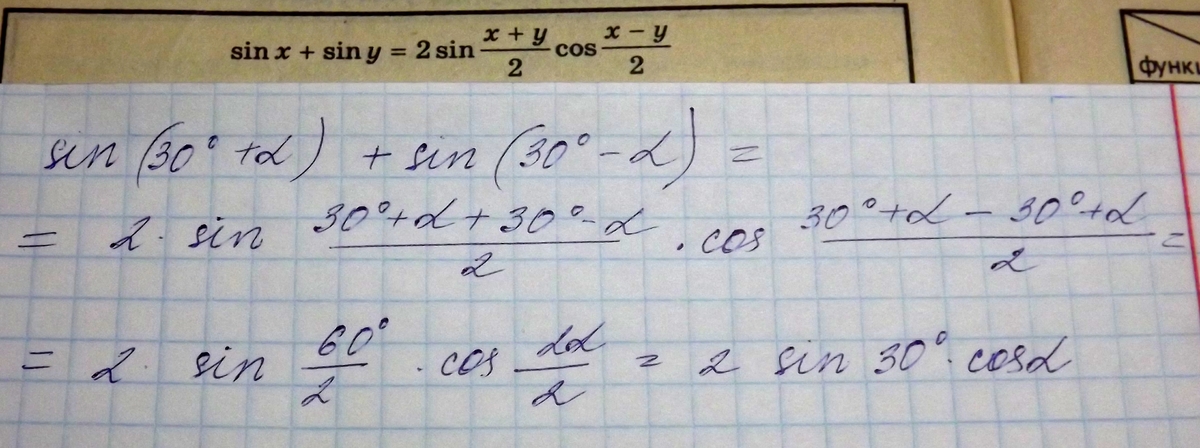 sin x + sin y = 2 sin (x + y)/2 cos (x − y)/2
функц
sin (30° + α) + sin (30° − α) =
= 2 · sin (30° + α + 30° − α)/2 · cos (30° + α − 30° + α)/2 =
= 2 · sin 60°/2 · cos 2α/2 = 2 sin 30° · cos α